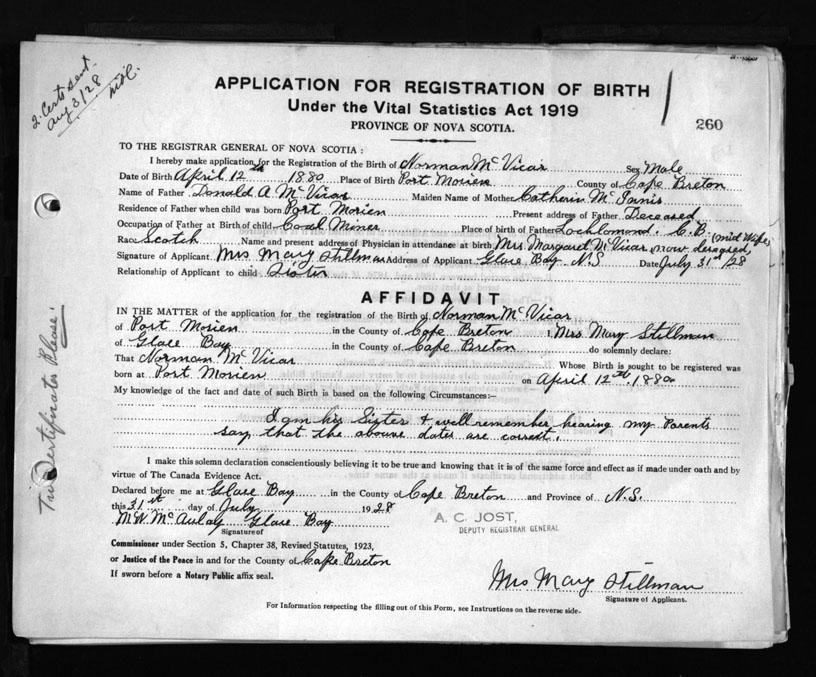 2. Certs sent
Aug 3/28
APPLICATION FOR REGISTRATION OF BIRTH
Under the Vital Statistics Act 1919
PROVINCE OF NOVA SCOTIA.
260
TO THE REGISTRAR GENERAL OF NOVA SCOTIA :
I hereby make application for the Registration of the Birth of Norman Mc Vicar Sex Male
Date of Birth April 12th 1880 Place of Birth Port Morien County of Cape Breton
Name of Father Donald A Mc Vicar Maiden Name of Mother Catherin Mc Innis
Residence of Father when child was born Port Morien Present address of Father Deceased
Occupation of Father at Birth of child Coal Miner Place of birth of Father Lochlomond. C.B. (mid Wife)
Race Scotch Name and present address of Physician in attendance at birth Mrs Margaret Mc Vicar now deseased
Signature of Applicant Mrs Mary Stillman Address of Applicant Glace Bay N.S Date July 31st /28
Relationship of Applicant to child Sister
AFFIDAVIT
IN THE MATTER of the application for the registration of the Birth of Norman Mc Vicar
of Port Morien in the County of Cape Breton I, Mrs Mary Stillman
of Glace Bay in the County of Cape Breton do solemnly declare:
That Norman Mc Vicar Whose Birth is sought to be registered was
born at Port Morien on April 12th. 1880
My knowledge of the fact and date of such Birth is based on the following Circumstances:—
I am his Sister & well remember hearing my Parents
say that the above dates are correct.
I make this solemn declaration conscientiously believing it to be true and knowing that it is of the same force and effect as if made under oath and by
virtue of The Canada Evidence Act.
Declared before me at Glace Bay in the County of Cape Breton and Province of N.S.
this 31st day of July 1928
M.W. Mc Aulay Glace Bay
Signature of
A. C. JOST,
DEPUTY REGISTRAR GENERAL
Commissioner under Section 5, Chapter 38, Revised Statutes, 1923,
or Justice of the Peace in and for the County of Cape Breton
If sworn before a Notary Public affix seal.
Mrs Mary Stillman
Signature of Applicant.
For Information respecting the filling out of this Form, see Instructions on the reverse side.
Two Certificates Please.